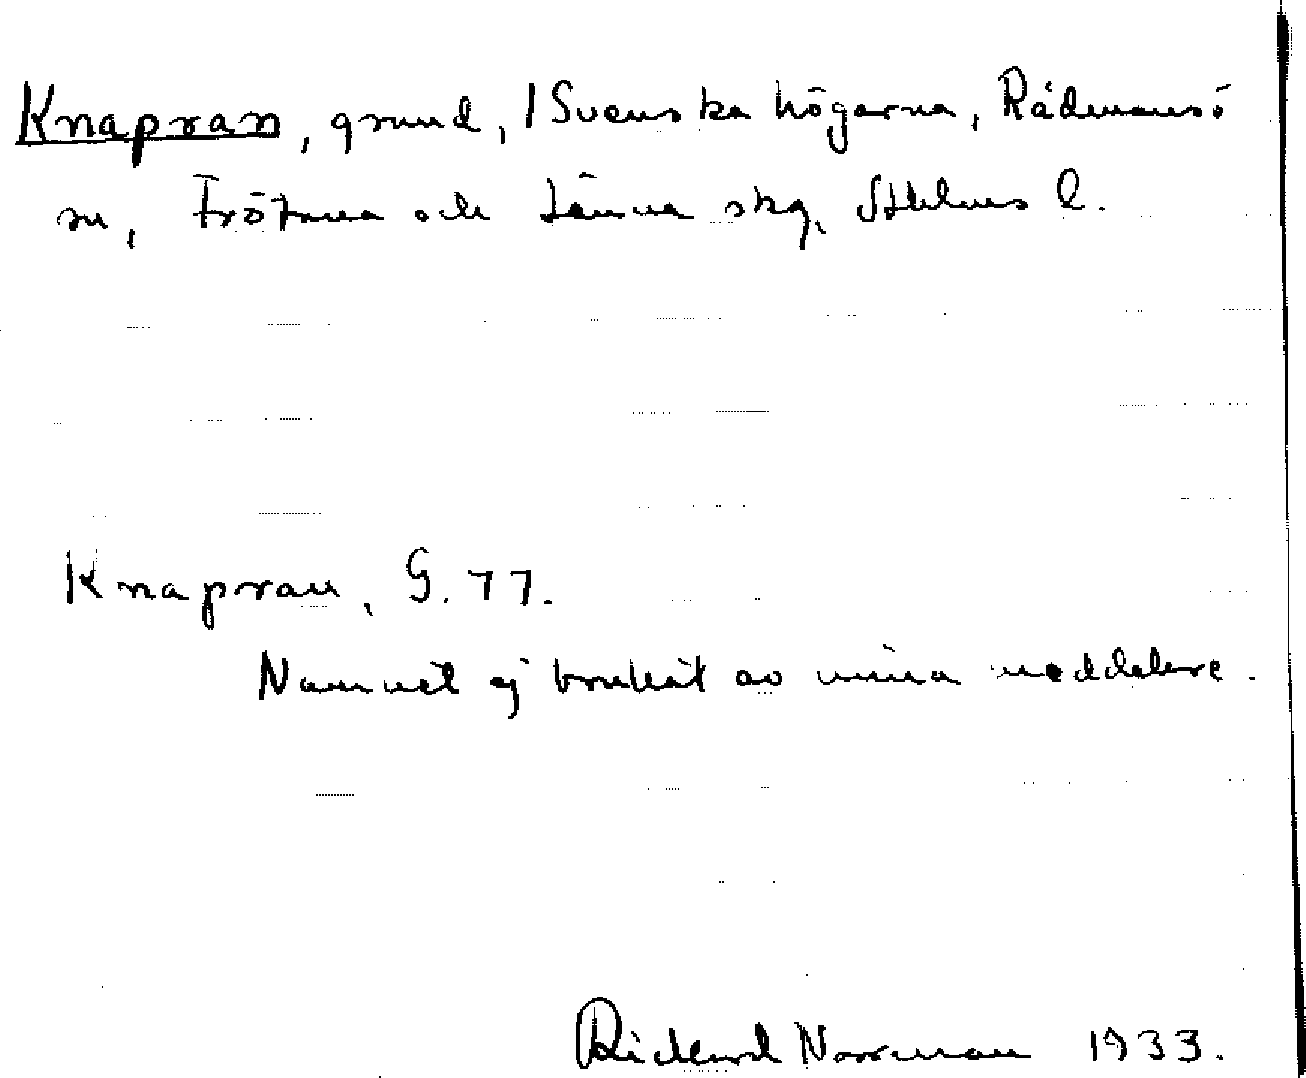 Knapran, grund, / Svenska högarna, Rådmansö
sn, Frötuna och Länna skg, Sthlms l.
Knapran, G. 77.
Namnet ej brukat av mina meddelare.
Rickard Norrman 1933.